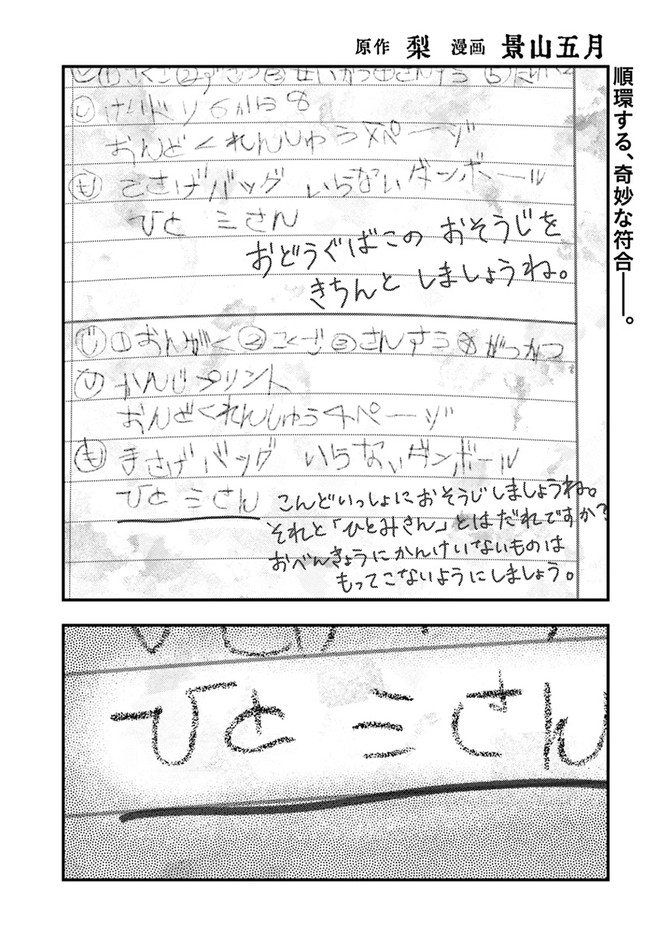 原作 梨 漫画 景山五月
順環する、奇妙な符合――。
し けいドリ6から8
おんどくれんしゅう ページ
も てさげバッグ いらないダンボール
ひと ミさん
おどうぐばこの おそうじを
きちんと しましょうね。
じ ①おんがく ②こくご ③さんすう ④がっかつ
し かんじプリント
おんどくれんしゅう4ページ
も てさげバッグ いらないダンボール
ひと ミさん
こんどいっしょにおそうじしましょうね。
それと「ひとみさん」とはだれですか?
おべんきょうにかんけいないものは
もってこないようにしましょう。
ひと ミさん